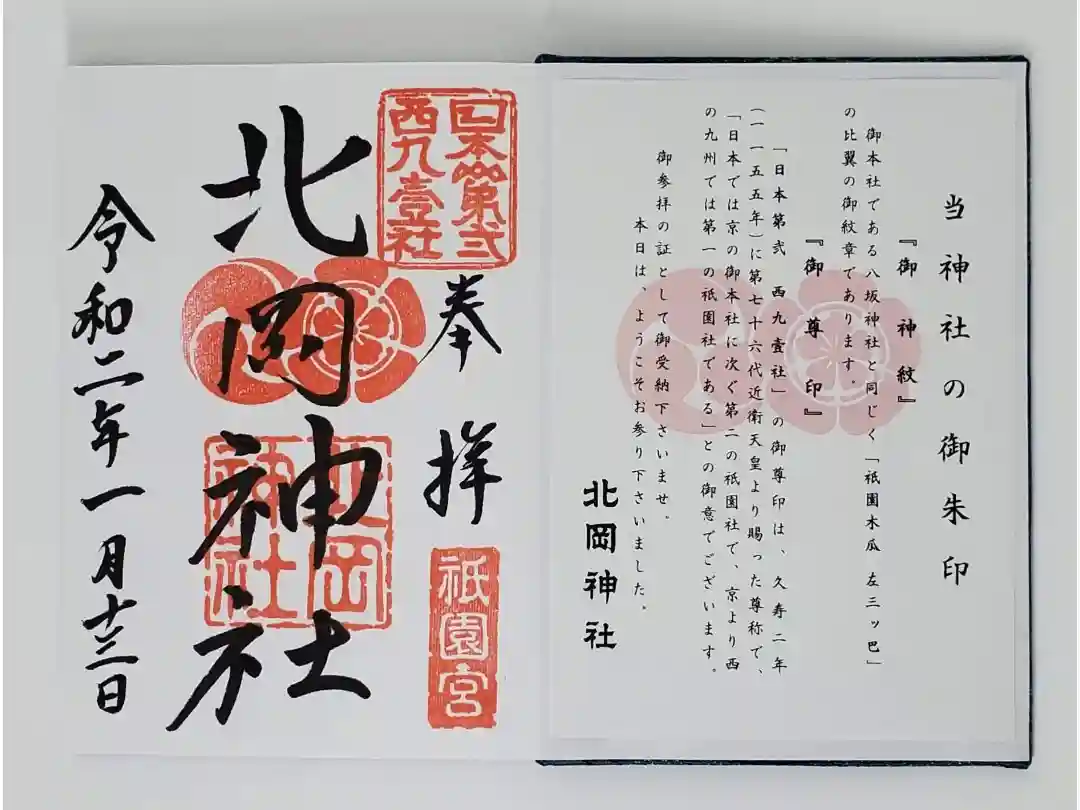 当神社の御朱印
『御神紋』
御本社である八坂神社と同じく「祇園木瓜 左三ッ巴」
の比翼の御紋章であります。
『御尊印』
「日本第弐 西九壹社」の御尊印は、久寿二年
(一一五五年)に第七十六代近衛天皇より賜った尊称で、
「日本では京の御本社に次ぐ第二の祇園社で、京より西
の九州では第一の祇園社である」との御意でございます。
御参拝の証として御受納下さいませ。
本日は、ようこそお参り下さいました。
北岡神社
日本第弐
西九壹社
奉拝
祇園宮
北岡神社
北岡
神社
令和二年一月十三日